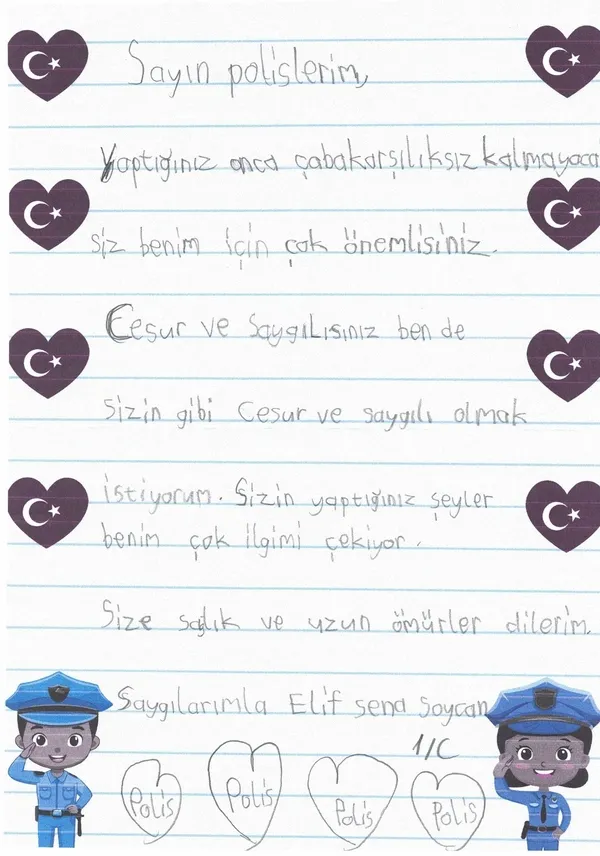 Sayın polislerim,
Yaptığınız onca çabakarşılıksız kalmayaca
siz benim için çok önemlisiniz.
Cesur ve saygılısınız ben de
sizin gibi cesur ve saygılı olmak
istiyorum. Sizin yaptığınız şeyler
benim çok ilgimi çekiyor.
Size sağlık ve uzun ömürler dilerim.
Saygılarımla Elif sena Soycan
1/C
Polis Polis Polis Polis